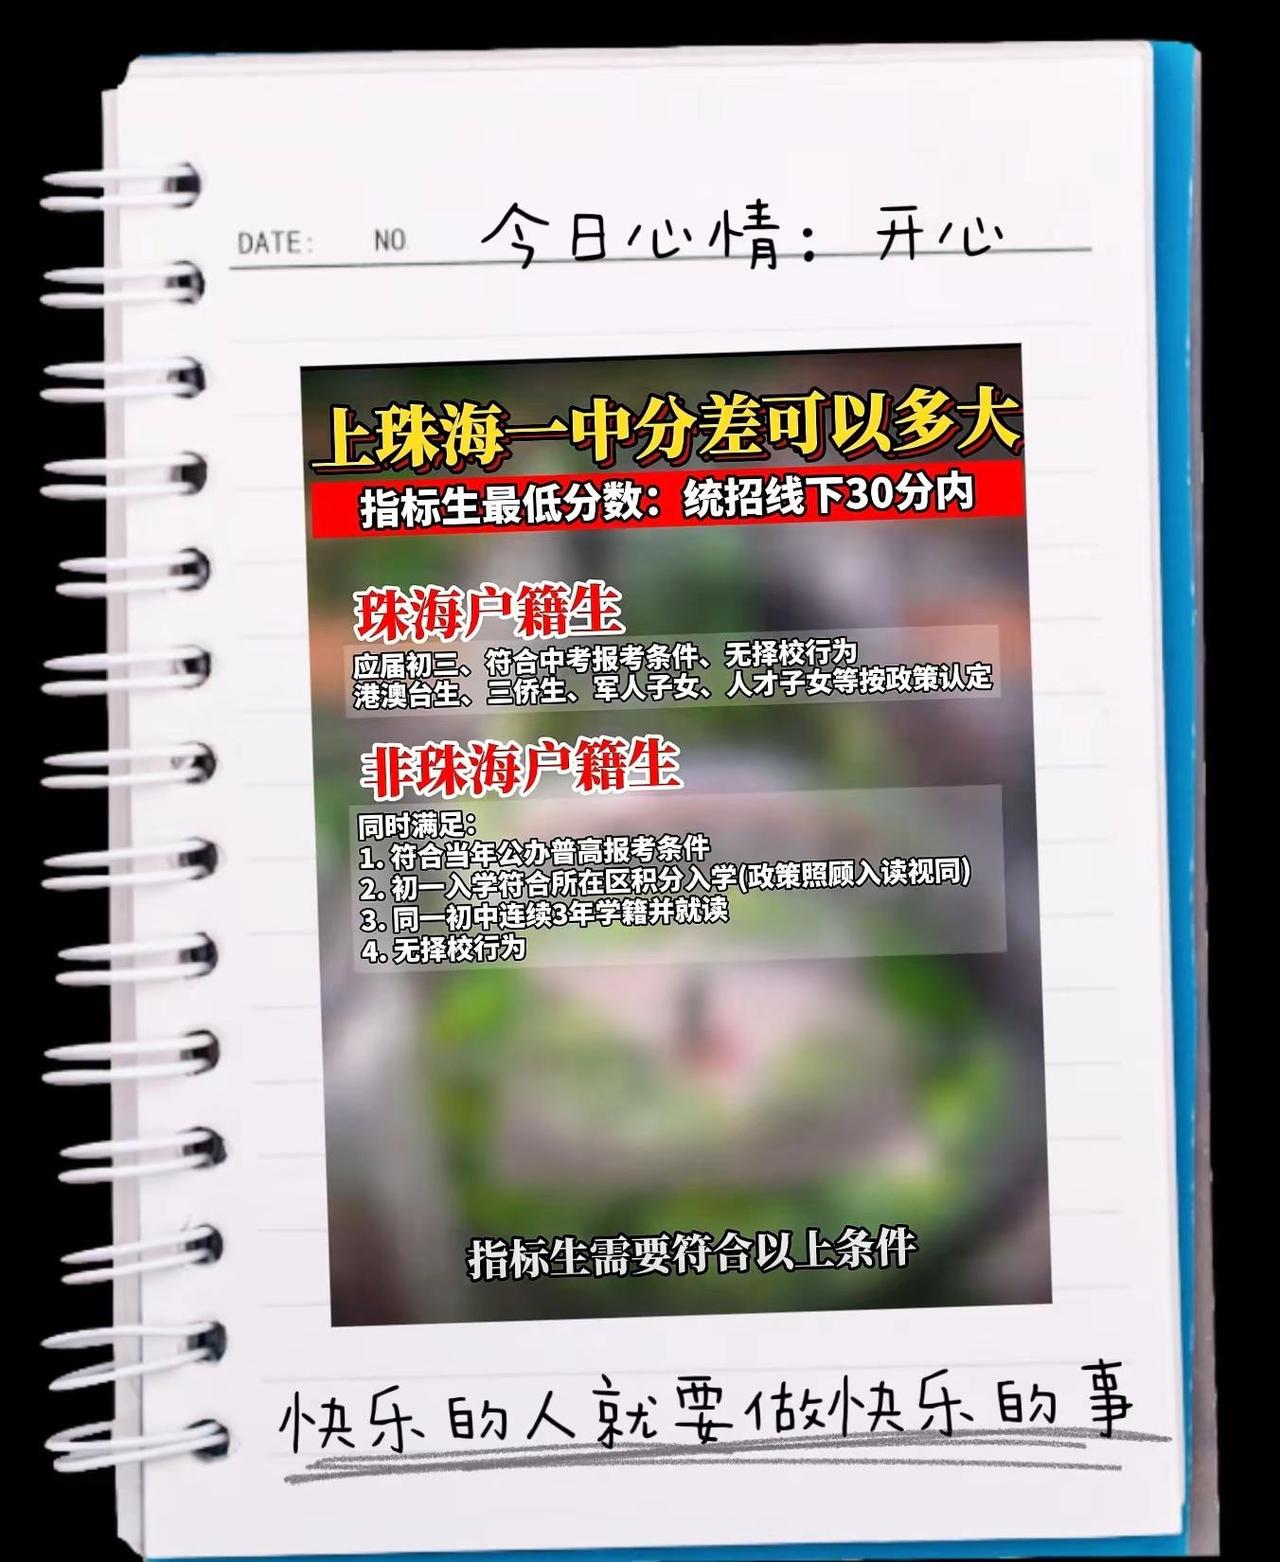 DATE: NO. 今日心情：开心
上珠海一中分差可以多大
指标生最低分数：统招线下30分内
珠海户籍生
应届初三、符合中考报考条件、无择校行为
港澳台生、三侨生、军人子女、人才子女等按政策认定
非珠海户籍生
同时满足：
1. 符合当年公办普高报考条件
2. 初一入学符合所在区积分入学(政策照顾入读视同)
3. 同一初中连续3年学籍并就读
4. 无择校行为
指标生需要符合以上条件
快乐的人就要做快乐的事